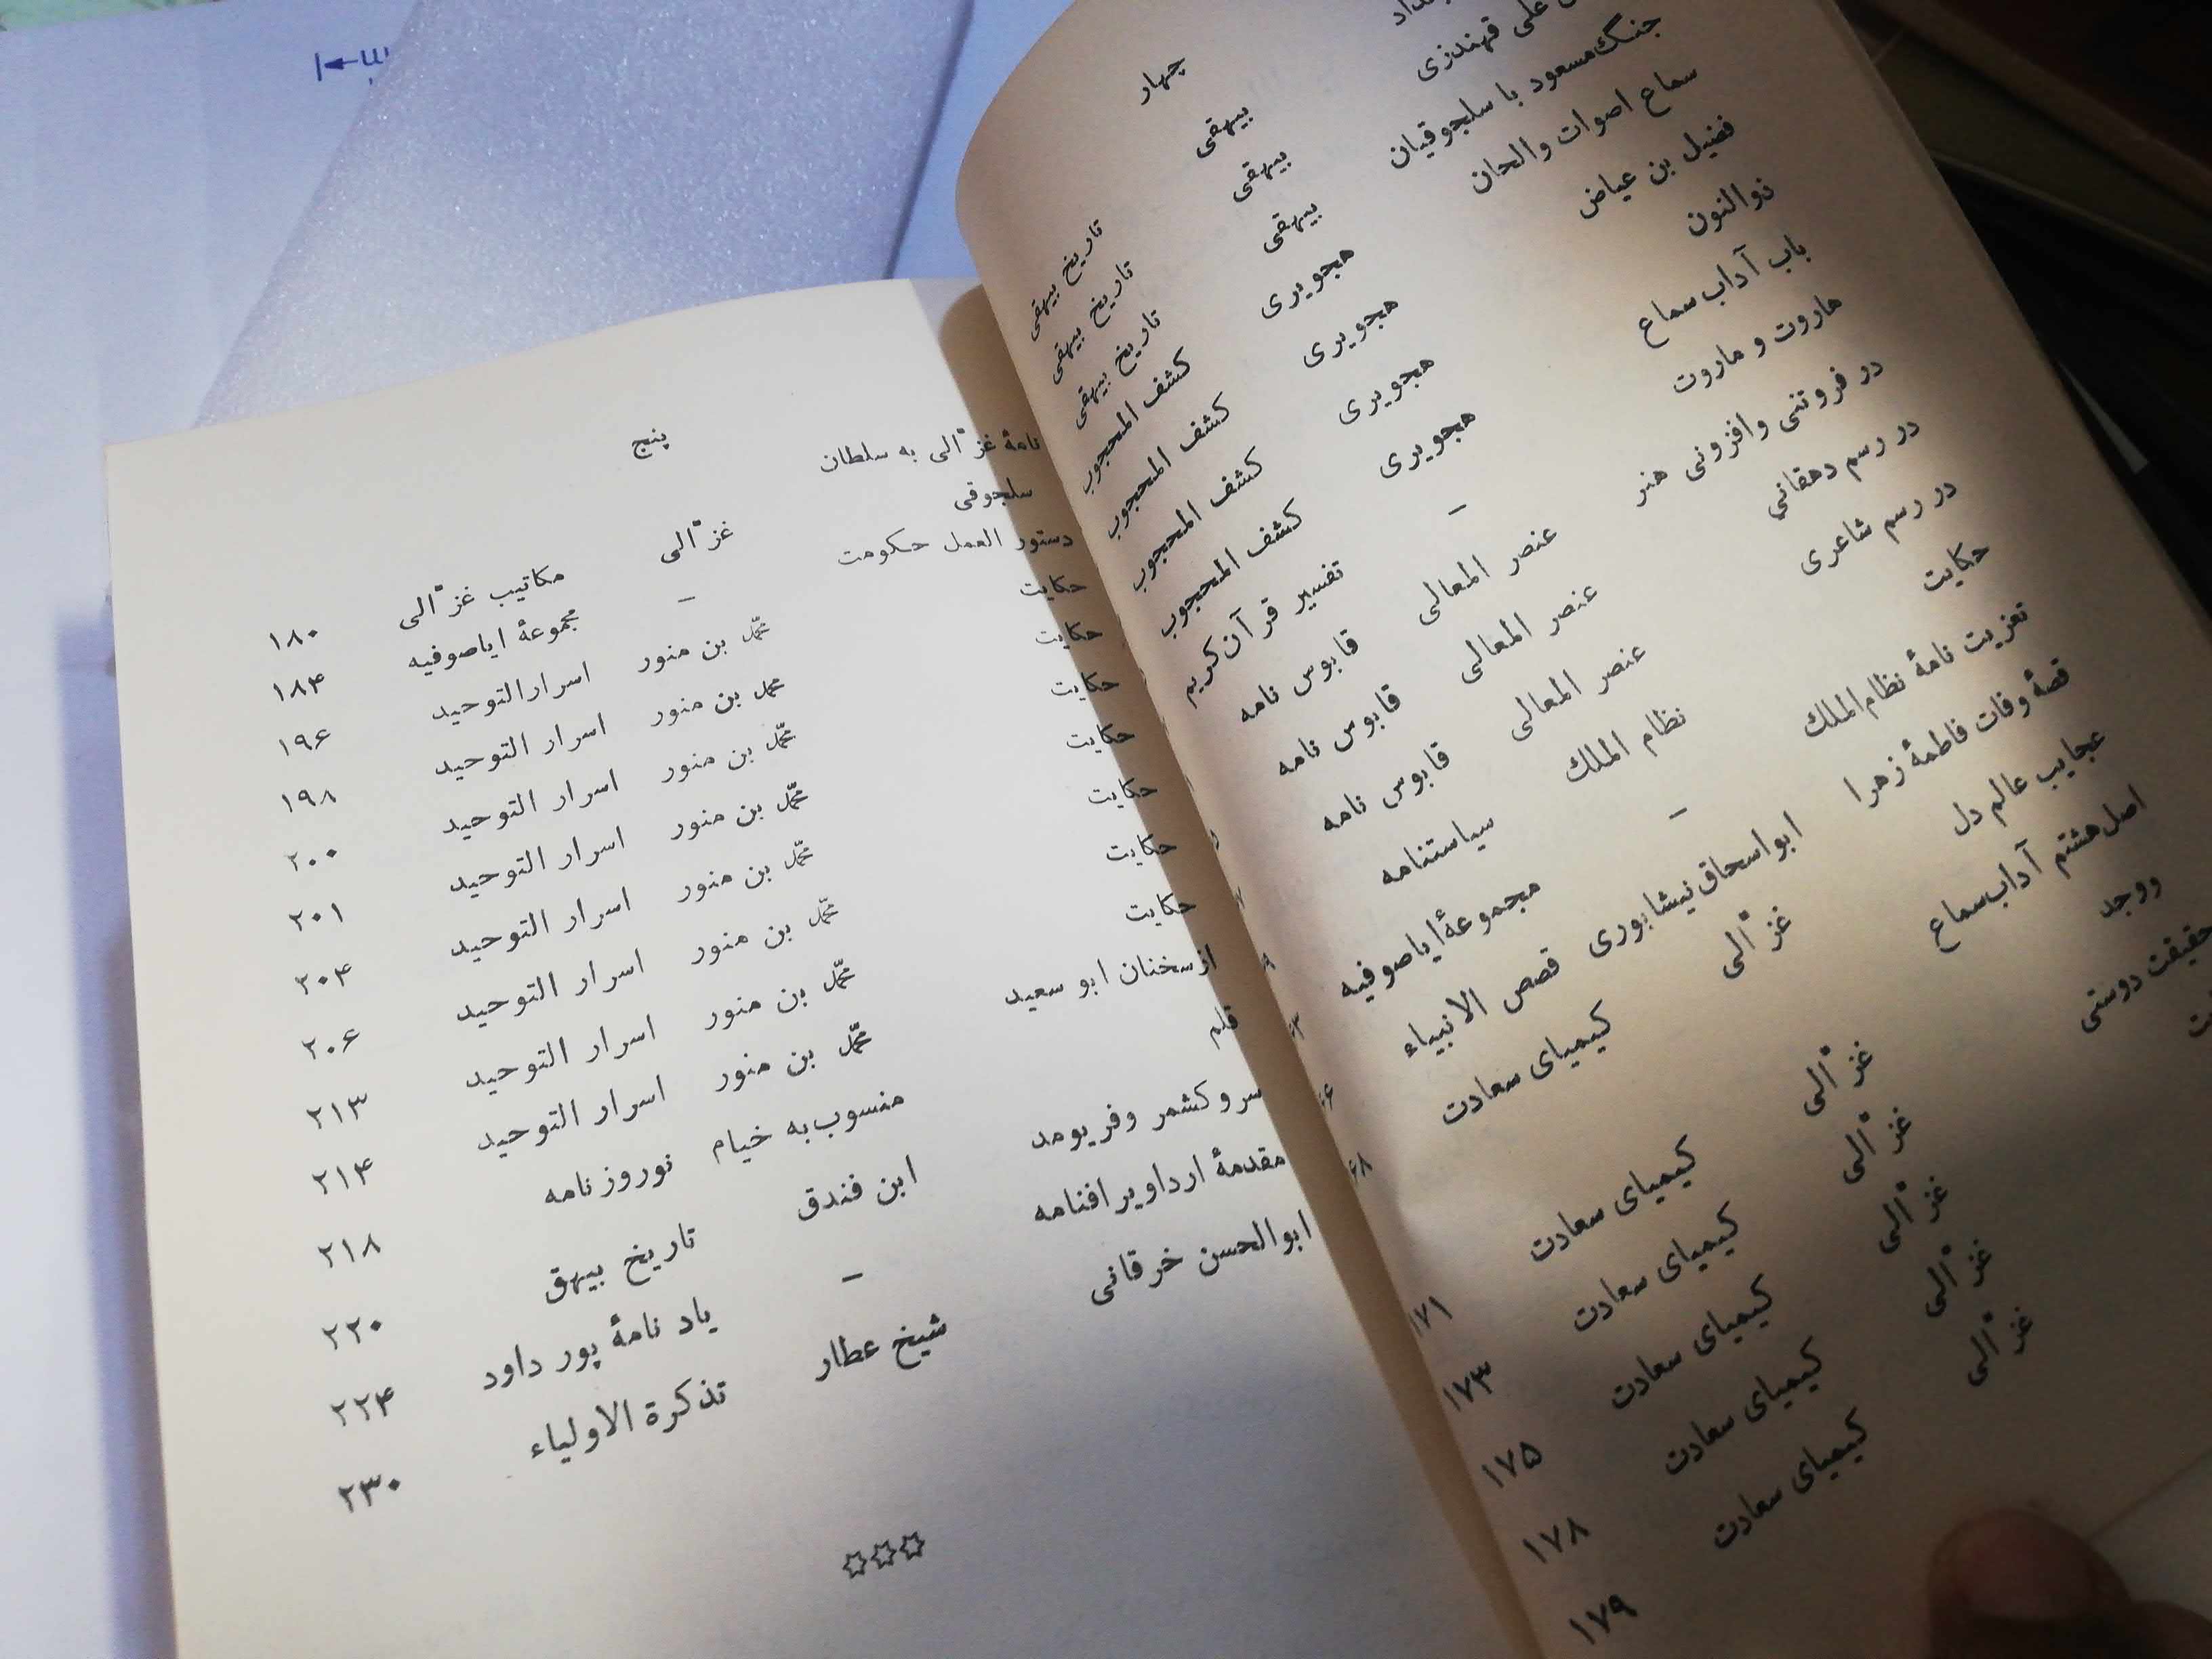 چهار
علی قهندزی بیهقی تاریخ بیهقی
جنگ مسعود با سلجوقیان بیهقی تاریخ بیهقی
سماع اصوات والحان بیهقی تاریخ بیهقی
فضیل بن عیاض هجویری کشف المحجوب
ذوالنون هجویری کشف المحجوب
باب آداب سماع هجویری کشف المحجوب
هاروت و ماروت هجویری کشف المحجوب
در فروتنی وافزونی هنر - تفسیر قرآن کریم
در رسم دهقانی عنصر المعالی قابوس نامه
در رسم شاعری عنصر المعالی قابوس نامه
حکایت عنصر المعالی قابوس نامه
تعزیت نامهٔ نظام الملک نظام الملک سیاستنامه
قصهٔ وفات فاطمهٔ زهرا - مجموعهٔ ایاصوفیه
عجایب عالم دل ابواسحاق نیشابوری قصص الانبیاء
اصل هشتم آداب سماع غزّالی کیمیای سعادت
ووجد غزّالی کیمیای سعادت ۱۷۱
حقیقت دوستی غزّالی کیمیای سعادت ۱۷۳
غزّالی کیمیای سعادت ۱۷۵
غزّالی کیمیای سعادت ۱۷۸
غزّالی کیمیای سعادت ۱۷۹
پنج
نامهٔ غزّالی به سلطان
سلجوقی غزّالی مکاتیب غزّالی ۱۸۰
دستور العمل حکومت - مجموعهٔ ایاصوفیه ۱۸۴
حکایت محمّد بن منور اسرارالتوحید ۱۹۶
حکایت محمد بن منور اسرار التوحید ۱۹۸
حکایت محمّد بن منور اسرار التوحید ۲۰۰
حکایت محمّد بن منور اسرار التوحید ۲۰۱
حکایت محمّد بن منور اسرار التوحید ۲۰۴
حکایت محمّد بن منور اسرار التوحید ۲۰۶
حکایت محمّد بن منور اسرار التوحید ۲۱۳
از سخنان ابو سعید محمّد بن منور اسرار التوحید ۲۱۴
قلم منسوب به خیام نوروزنامه ۲۱۸
سروکشمر وفریومد ابن فندق تاریخ بیهق ۲۲۰
مقدمهٔ ارداویرافنامه - یاد نامهٔ پور داود ۲۲۴
ابوالحسن خرقانی شیخ عطار تذکرة الاولیاء ۲۳۰